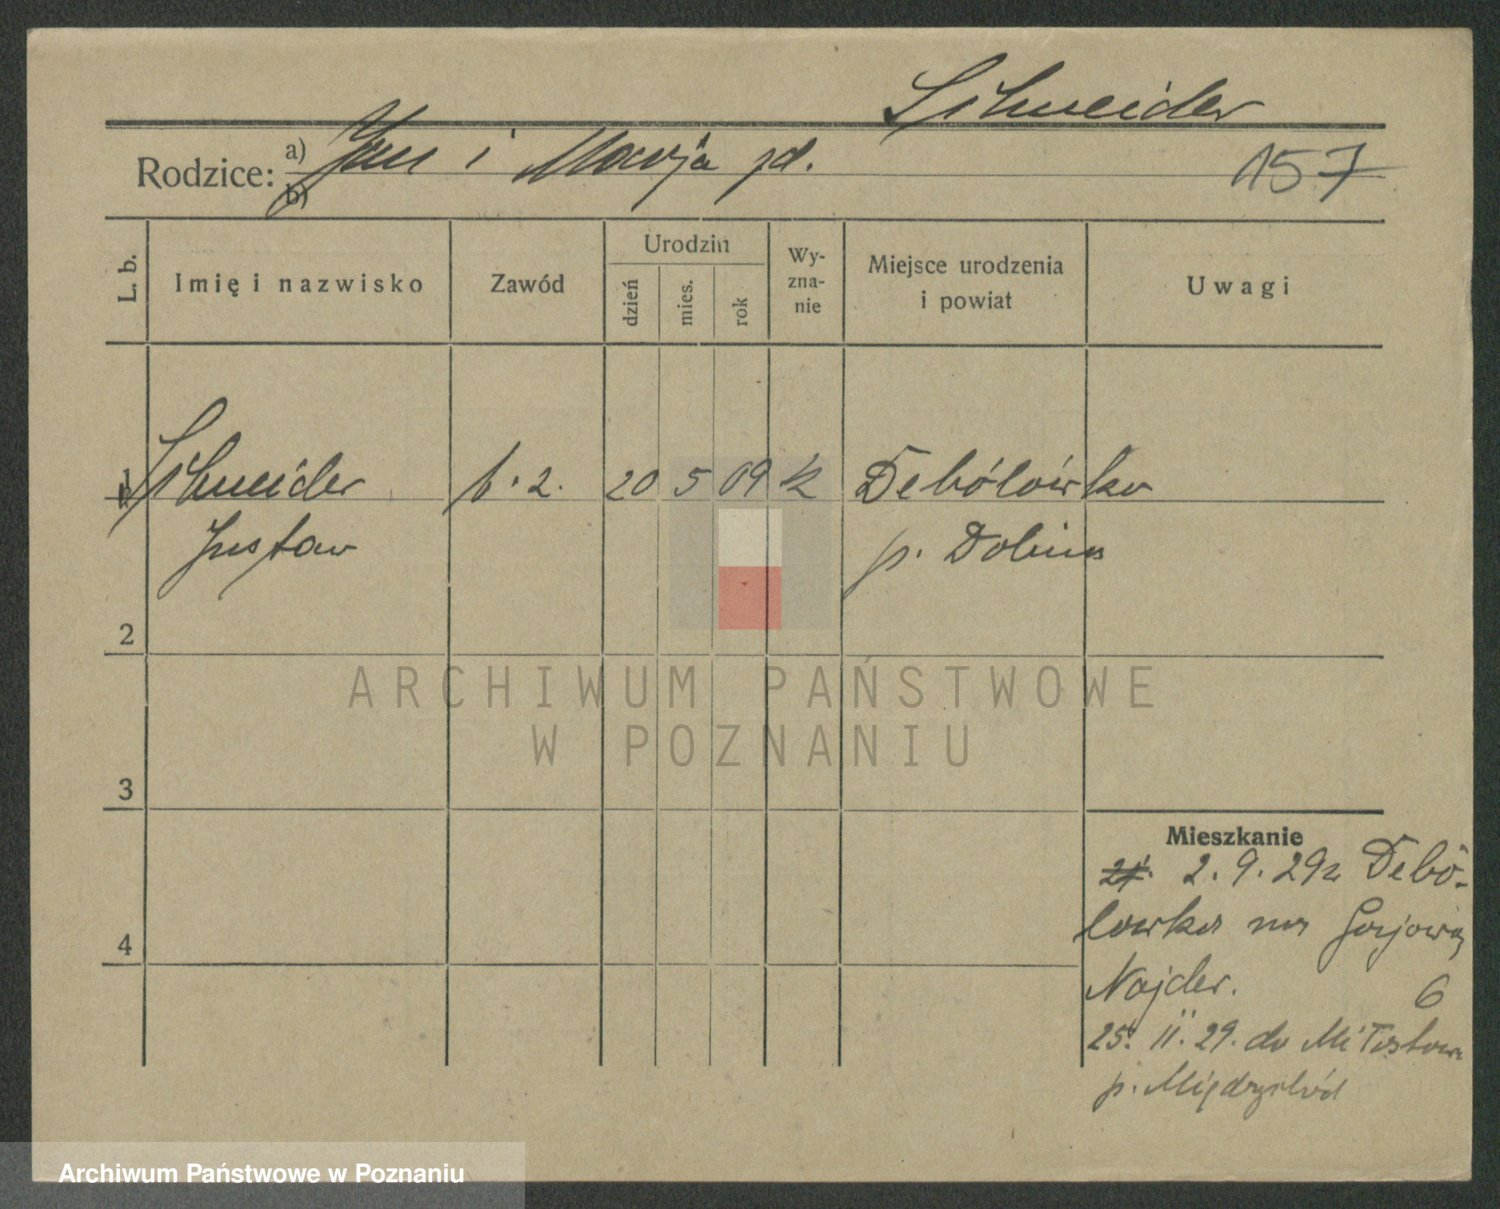 Schneider
Rodzice: a) Jan i Maria zd.
b)
157
L. b.
Imię i nazwisko
Zawód
Urodzin
dzień
mies.
rok
Wy-
zna-
nie
Miejsce urodzenia
i powiat
Uwagi
1 Schneider
Gustaw
20 5 09 k
Debólówka
p. Dolina
2
3
4
ARCHIWUM PAŃSTWOWE
W POZNANIU
Mieszkanie
2. 9. 29 z Debó-
lówka na
Najder. 6
25. 11. 29. do
p. Międzychód
Archiwum Państwowe w Poznaniu